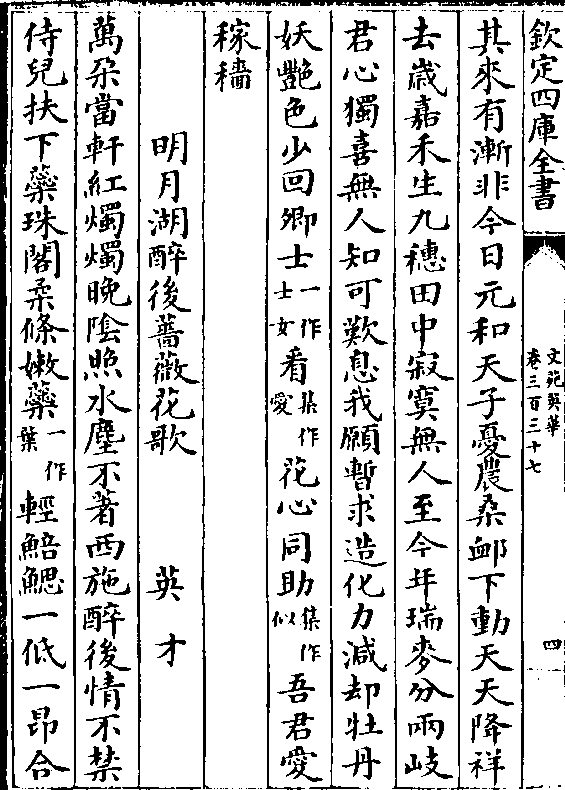 欽定四庫全書
文苑英華
卷三百三十七
四
其來有漸非今日元和天子憂農桑䘏下動天天降祥
去歲嘉禾生九穗田中寂寞無人至今年瑞麥分兩岐
君心獨喜無人知可歎息我願暫求造化力減却牡丹
妖豔色少回卿士一作士女看集作愛花心同助集作似吾君愛
稼穡
明月湖醉後薔薇花歌 英才
萬朶當軒紅燭燭晚陰照水塵不著西施醉後情不禁
侍兒扶下蘂珠閣柔條嫩蘂一作葉輕䱌鰓一低一昂合